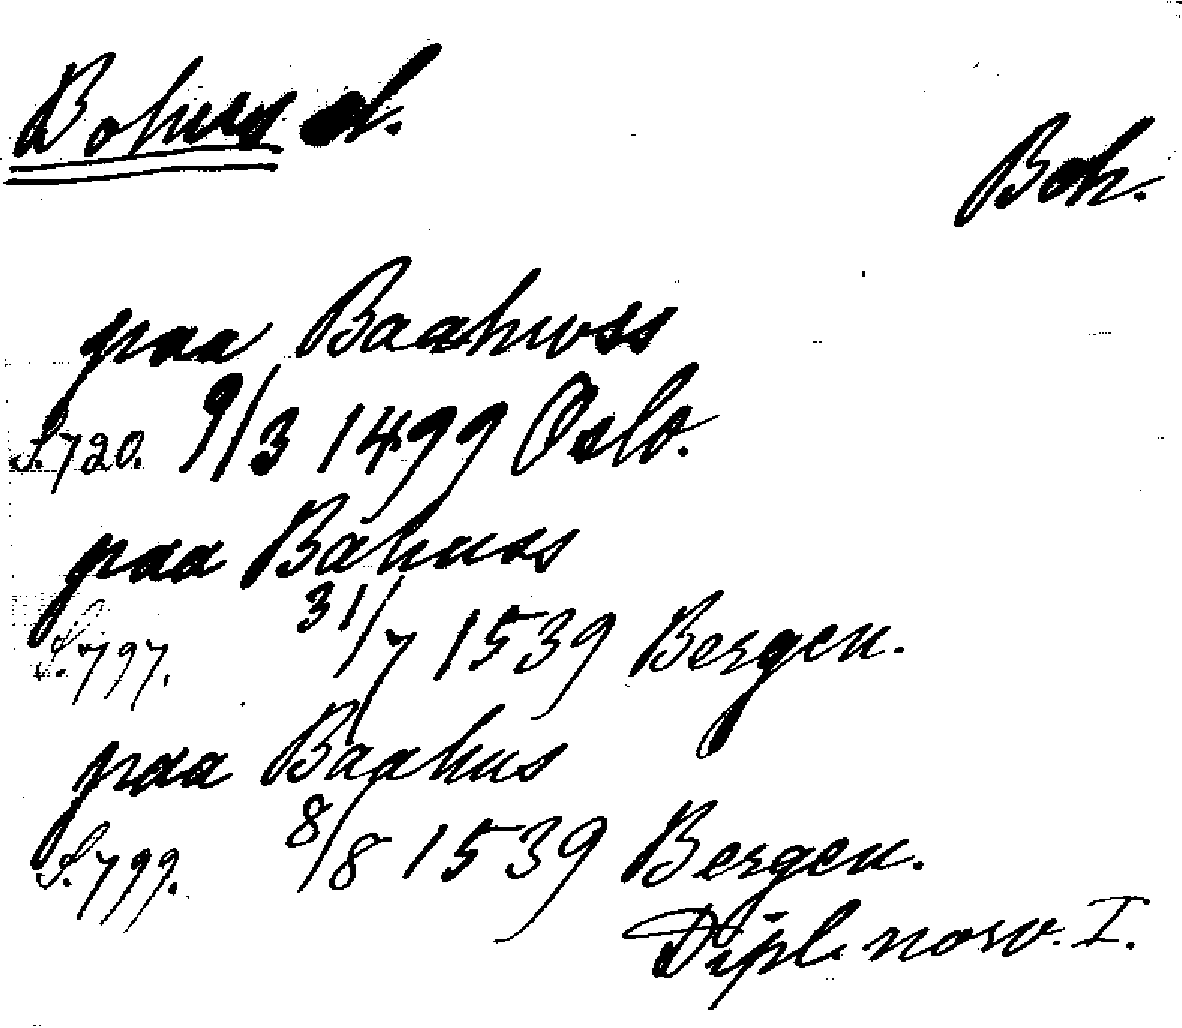 Bohus sl.
Boh.
paa Baahwss
S. 720. 9/3 1499 Oslo.
paa Bahuss
S. 797. 31/7 1539 Bergen.
paa Baahus
S. 799. 8/8 1539 Bergen.
Dipl. norv. I.